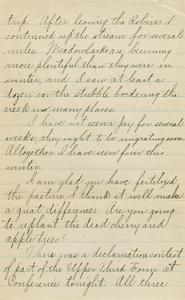 trip. After leaving the Robins I
continued up the stream for several
miles. Meadowlarks are becoming
more plentiful than they were in
winter, and I saw at least a
dozen in the stubble bordering the
creek in many places.
I have not seen a pay for several
weeks, they ought to be migrating soon.
Altogether I have seen four this
winter.
I am glad you have fertilized
the pasture, I think it will make
a great difference. Are you going
to replant the dead cherry and
apple trees?
There was a declamation contest
of part of the Upper Third Form at
Conference tonight. All three